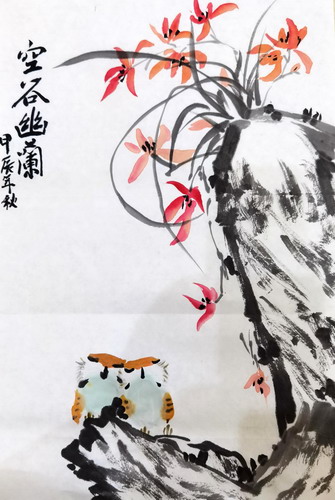 空谷幽蘭
甲辰年秋